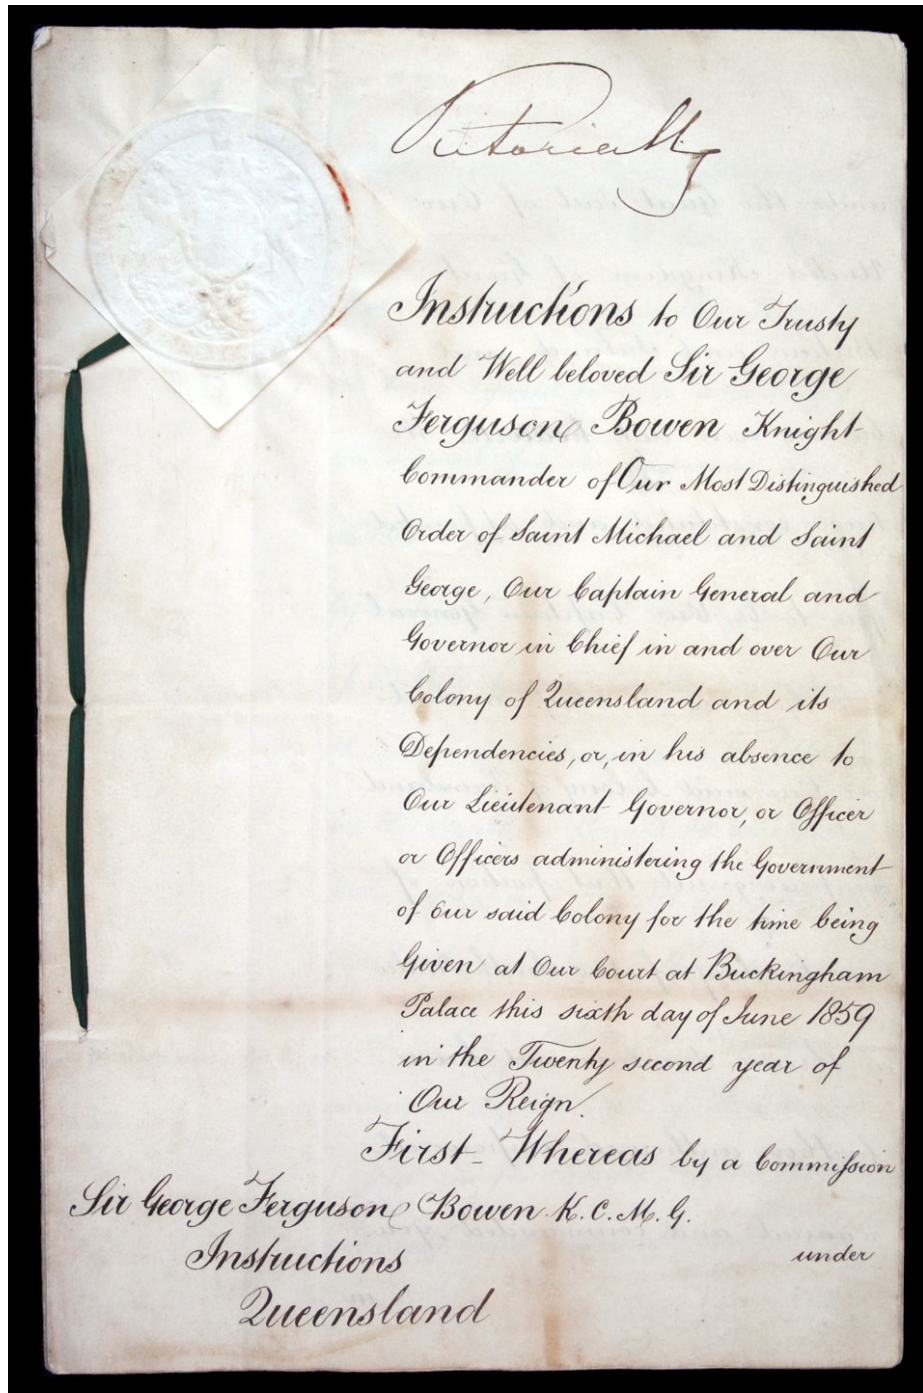 Victoria R
Instructions to Our Trusty
and Well beloved Sir George
Ferguson Bowen Knight
Commander of Our Most Distinguished
Order of Saint Michael and Saint
George, Our Captain General and
Governor in Chief in and over Our
Colony of Queensland and its
Dependencies, or, in his absence to
Our Lieutenant Governor, or Officer
or Officers administering the Government
of Our said Colony for the time being
Given at Our Court at Buckingham
Palace this sixth day of June 1859
in the Twenty second year of
Our Reign.
First - Whereas by a Commission
under
Sir George Ferguson Bowen K. C. M. G.
Instructions
Queensland